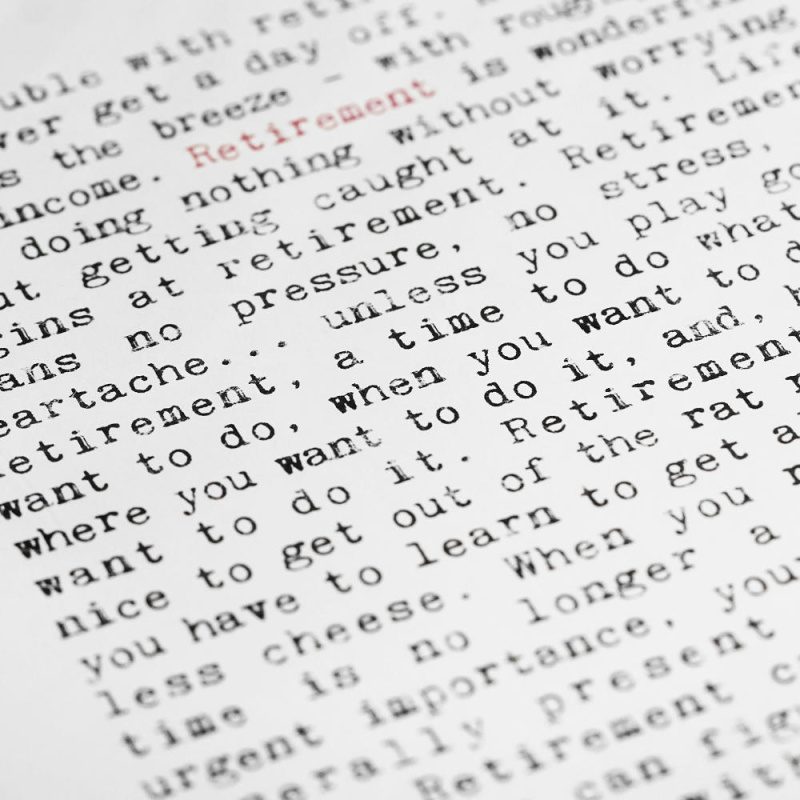 uble with reti
ver get a day off.
s the breeze – with rough
income. Retirement is wonderf
doing nothing without worrying
ut getting caught at it. Life
gins at retirement. Retiremen
ans no pressure, no stress,
eartache... unless you play go
etirement, a time to do what
want to do, when you want to d
where you want to do it, and,
want to do it. Retirement
nice to get out of the rat r
you have to learn to get a
less cheese. When you r
time is no longer a
urgent importance, your
nerally present
Retirement c
can fig
with